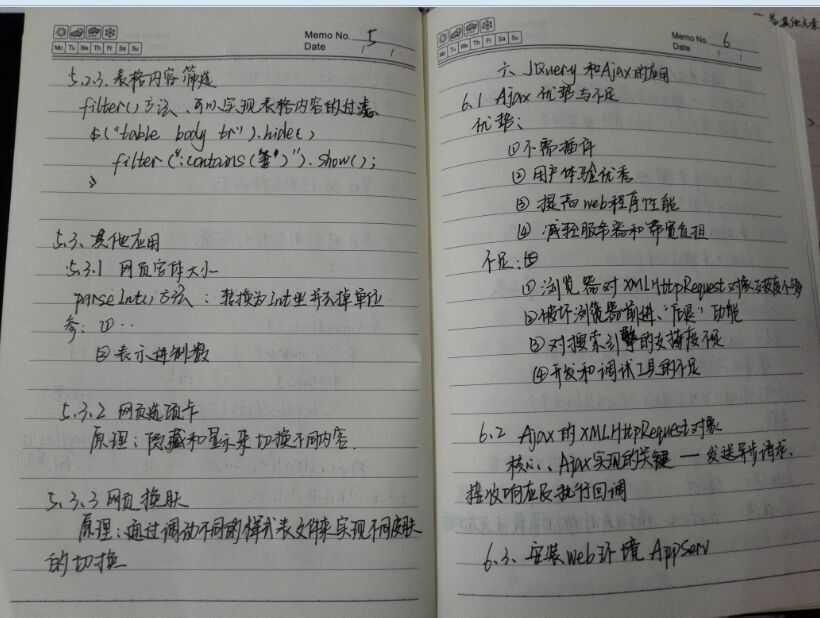 Memo No. 5
Mo Tu We Th Fr Sa Su
Date
5.2.3. 表格内容筛选
filter()方法、可以实现表格内容的过滤.
$("table body tr").hide()
filter(":contains()").show();
5.3. 其他应用
5.3.1 网页字体大小
parseInt()方法：转换为Int型并去掉单位
参：①..
②表示进制数
5.3.2 网页选项卡
原理：隐藏和显示来切换不同内容.
5.3.3 网页换肤
原理：通过调动不同的样式表文件来实现不同皮肤
的切换
Memo No. 6
Mo Tu We Th Fr Sa Su
Date
六、JQuery 和Ajax的应用
6.1 Ajax 优势与不足
优势：
①不需插件
②用户体验优秀
③提高web程序性能
④减轻服务器和带宽负担
不足：
①浏览器对XMLHttpRequest对象支持度不够
②破坏浏览器前进、"后退"功能
③对搜索引擎的支持度不足
④开发和调试工具的不足
6.2 Ajax 的XMLHttpRequest对象
核心、Ajax实现的关键 — 发送异步请求、
接收响应及执行回调
6.3、安装web环境 AppServ